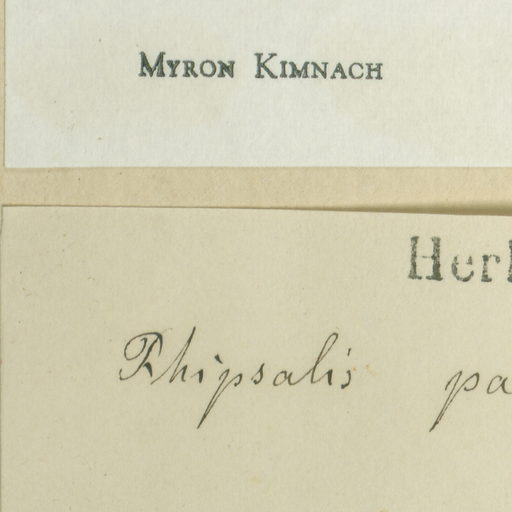 MYRON KIMNACH
Her
Rhipsalis pa